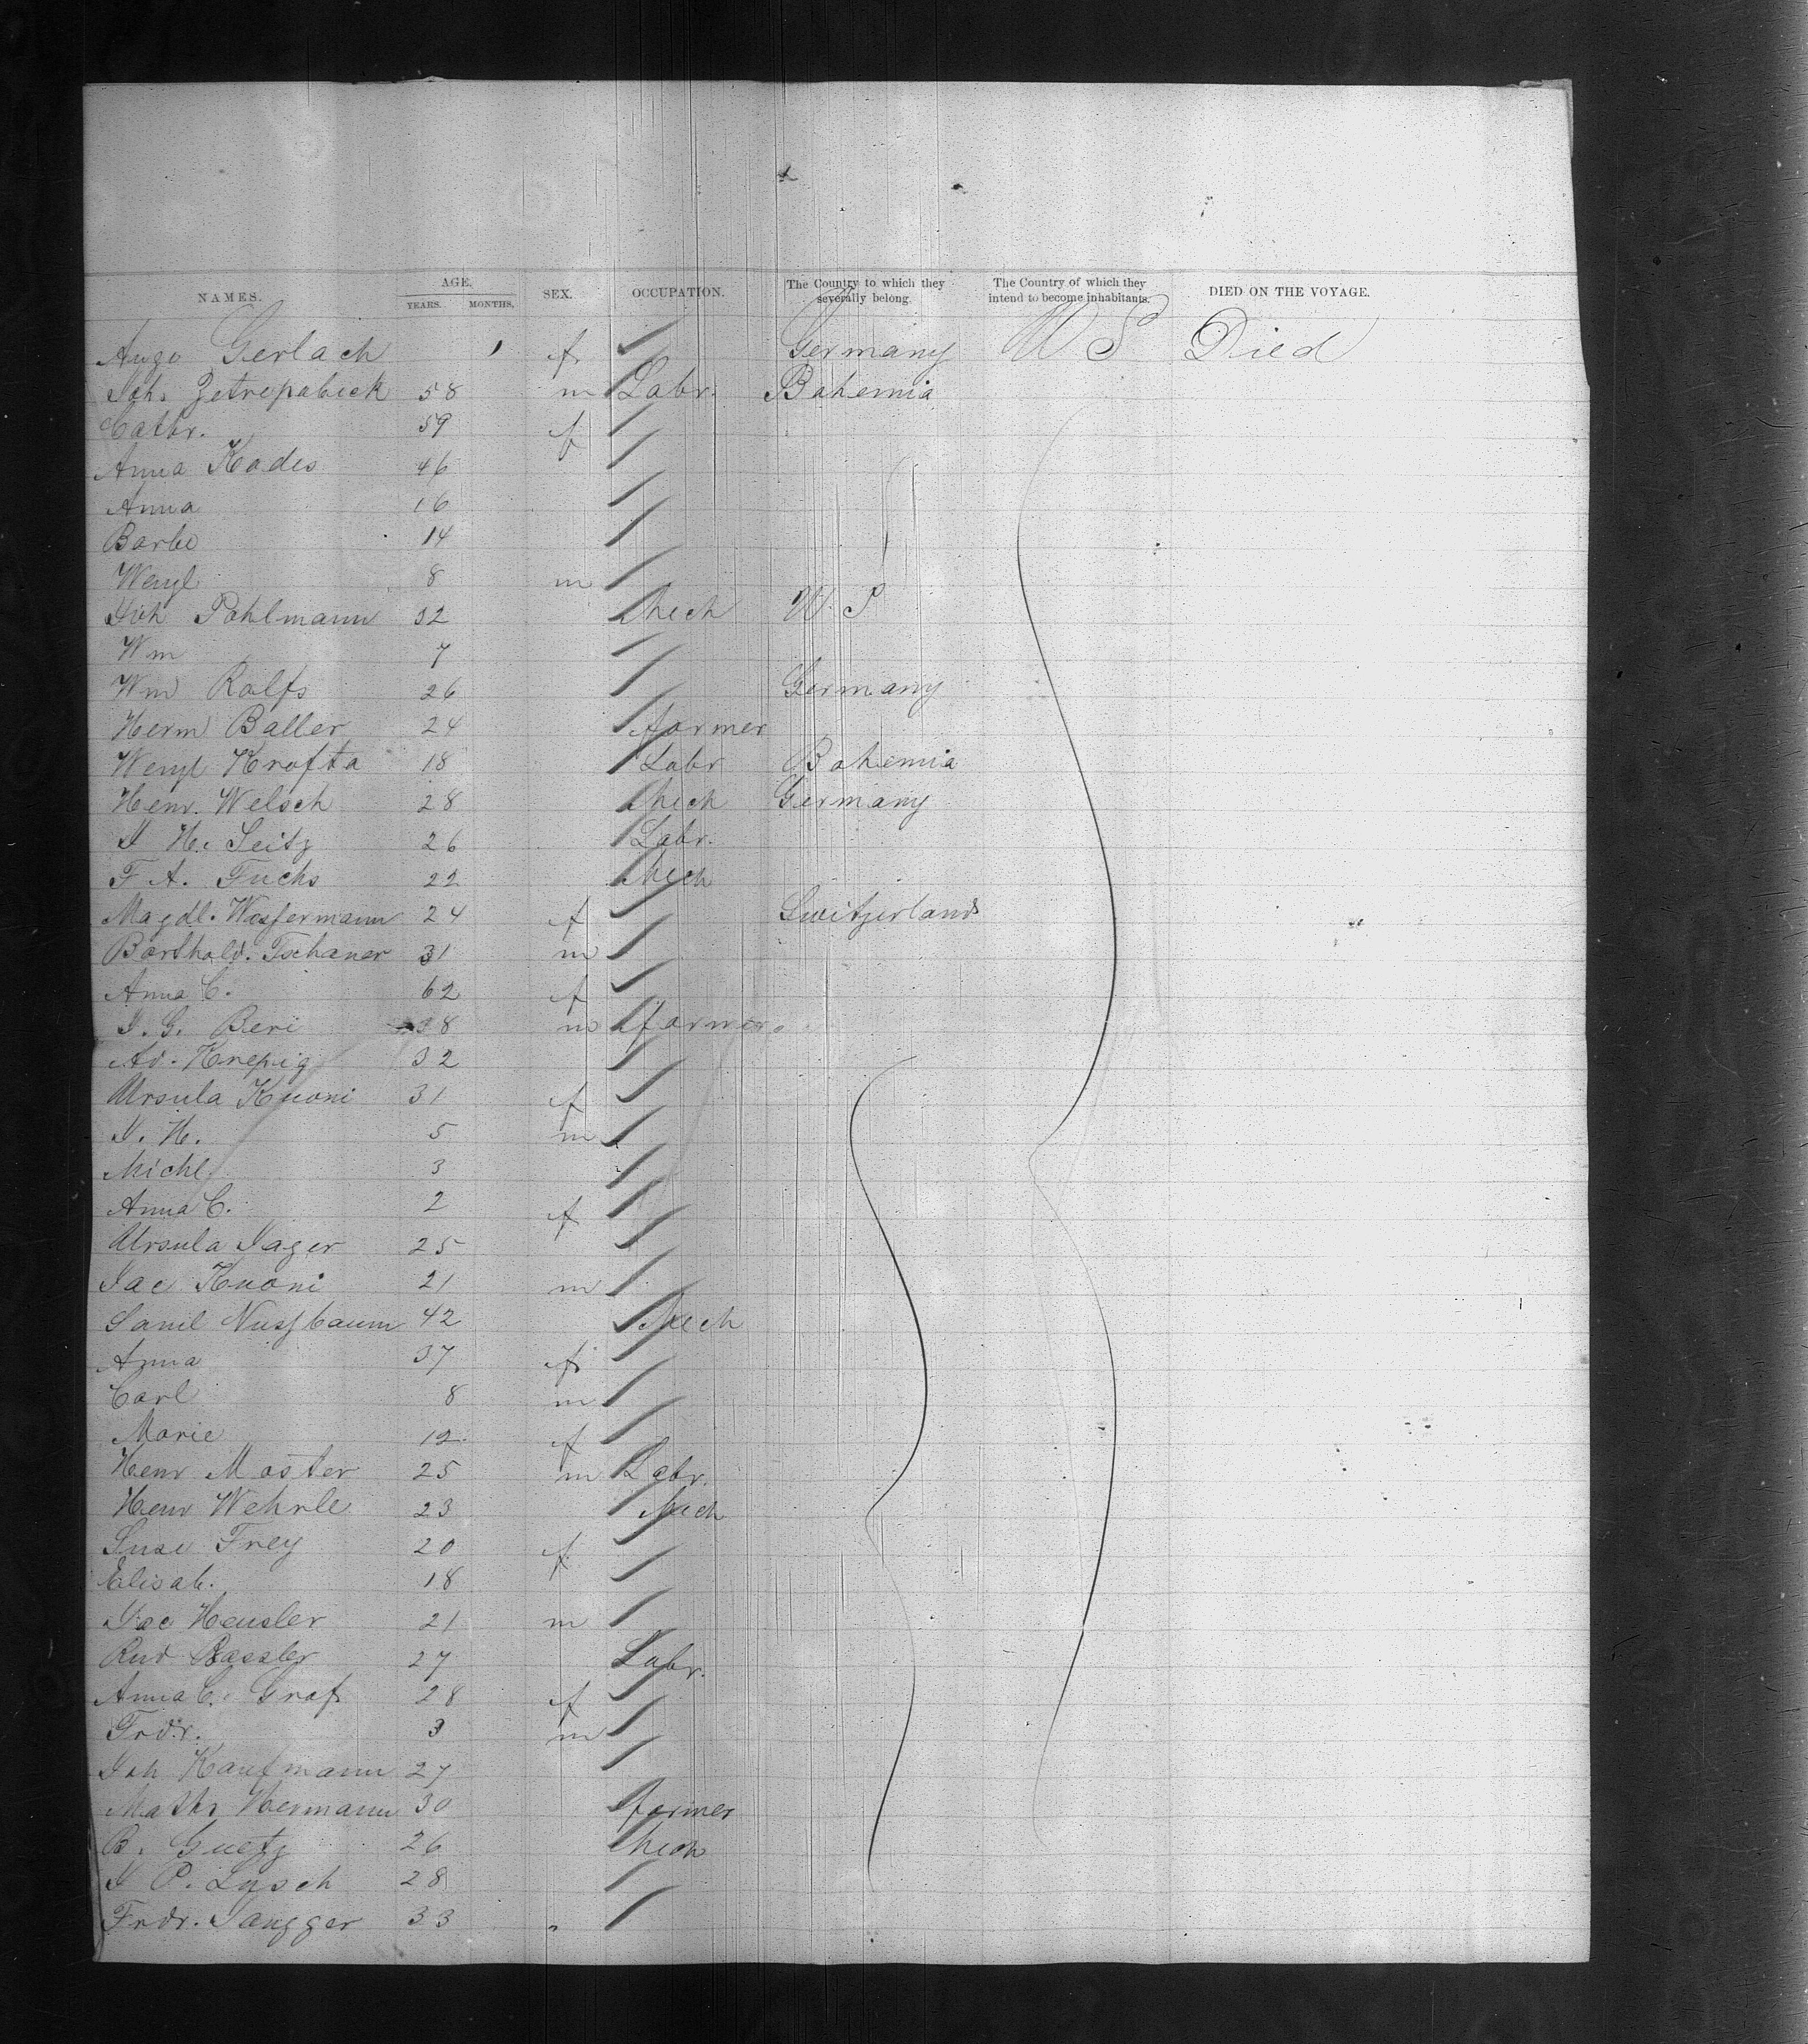 NAMES. AGE. YEARS. MONTHS. SEX. OCCUPATION. The Country to which they severally belong. The Country of which they intend to become inhabitants. DIED ON THE VOYAGE.
Gerlach 1 f Germany U S Died
Joh. 58 m Labr. Bohemia
Cathr. 59 f
Anna Kades 46
Anna 16
Barbe 14
Wenzl 8 m
Joh Pohlmann 32 Mech U. S
Wm 7
Wm Rolfs 26 Germany
Herm Baller 24 farmer
Wenzl Krofta 18 Labr Bohemia
Henr. Welsch 28 Mech Germany
J H. Seitz 26 Labr.
F A. Fuchs 22 Mech
Magdl. Wassermann 24 f Switzerland
Barthold. Tschaner 31 m
Anna C. 62 f
J. G. Beri 38 m farmer
Ad. Knepig 32
Ursula Kuoni 31 f
J. H. 5 m
Michl 3
Anna C. 2 f
Ursula Jager 25
Jac Kuoni 21 m
Saml Nussbaum 42 Mech
Anna 37 f
Carl 8 m
Marie 12 f
Henr Moster 25 m Labr.
Henr Wehrle 23 Mech
Suse Frey 20 f
Elisab. 18
Jac Heusler 21 m
Rud Bassler 27 Labr.
Anna C. Graf 28 f
Frdr. 3 m
Joh Kaufmann 27
Mathr Hermann 30 farmer
B. Guetz 26 Mech
J P. Lysch 28
Frdr. Jaugger 33 "